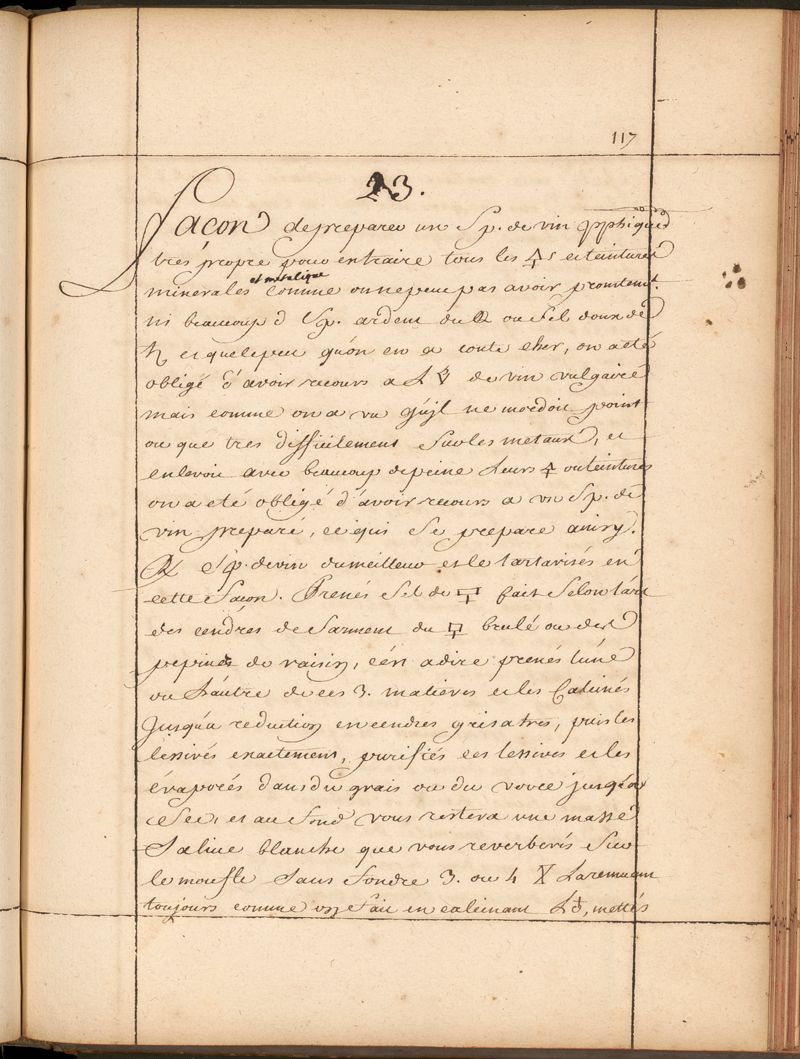 117
23.
Façon de preparer un Sp. de vin pphique
tres propre pour entraire tous les 🜍s et teintures
minerales et metalique comme on ne peut pas avoir promtemt.
ni beaucoup d'Sp. ardent du ou Sel doux de
♄ et quelepeu qu'on en a coute cher, on a eté
obligé d'avoir recours a L de vin vulgaire
mais comme on a vu qu'jl ne mordoit point
ou que tres difficilement Sur les metaux, et
enlevoit avec beaucoup de peine Leurs 🜍 ou teintures
on a eté obligé d'avoir recours a un Sp. de
vin preparé, ce qui Se prepare ainsy.
Sp. de vin du meilleur et le tartarisés en
cette Façon. Prenés Sel de 🜿 fait Selon l'art
des cendres de Sarment du 🜿 brulé ou des
pepins de raisin, c'est a dire prenés l'une
ou L'autre de ces 3. matieres et les Calcinés
Jusqu'a reduction en cendres grisatres, puis les
lessivés exactement, purifiés ces lessives et les
évaporés dans du grais ou du verre jusqu'a
Sec, et au Fond vous restera une masse
Saline blanche que vous reverberés Sur
le moufle Sans Fondre 3. ou 4 Laremuant
toujours comme on Fait en calcinant L, mettés